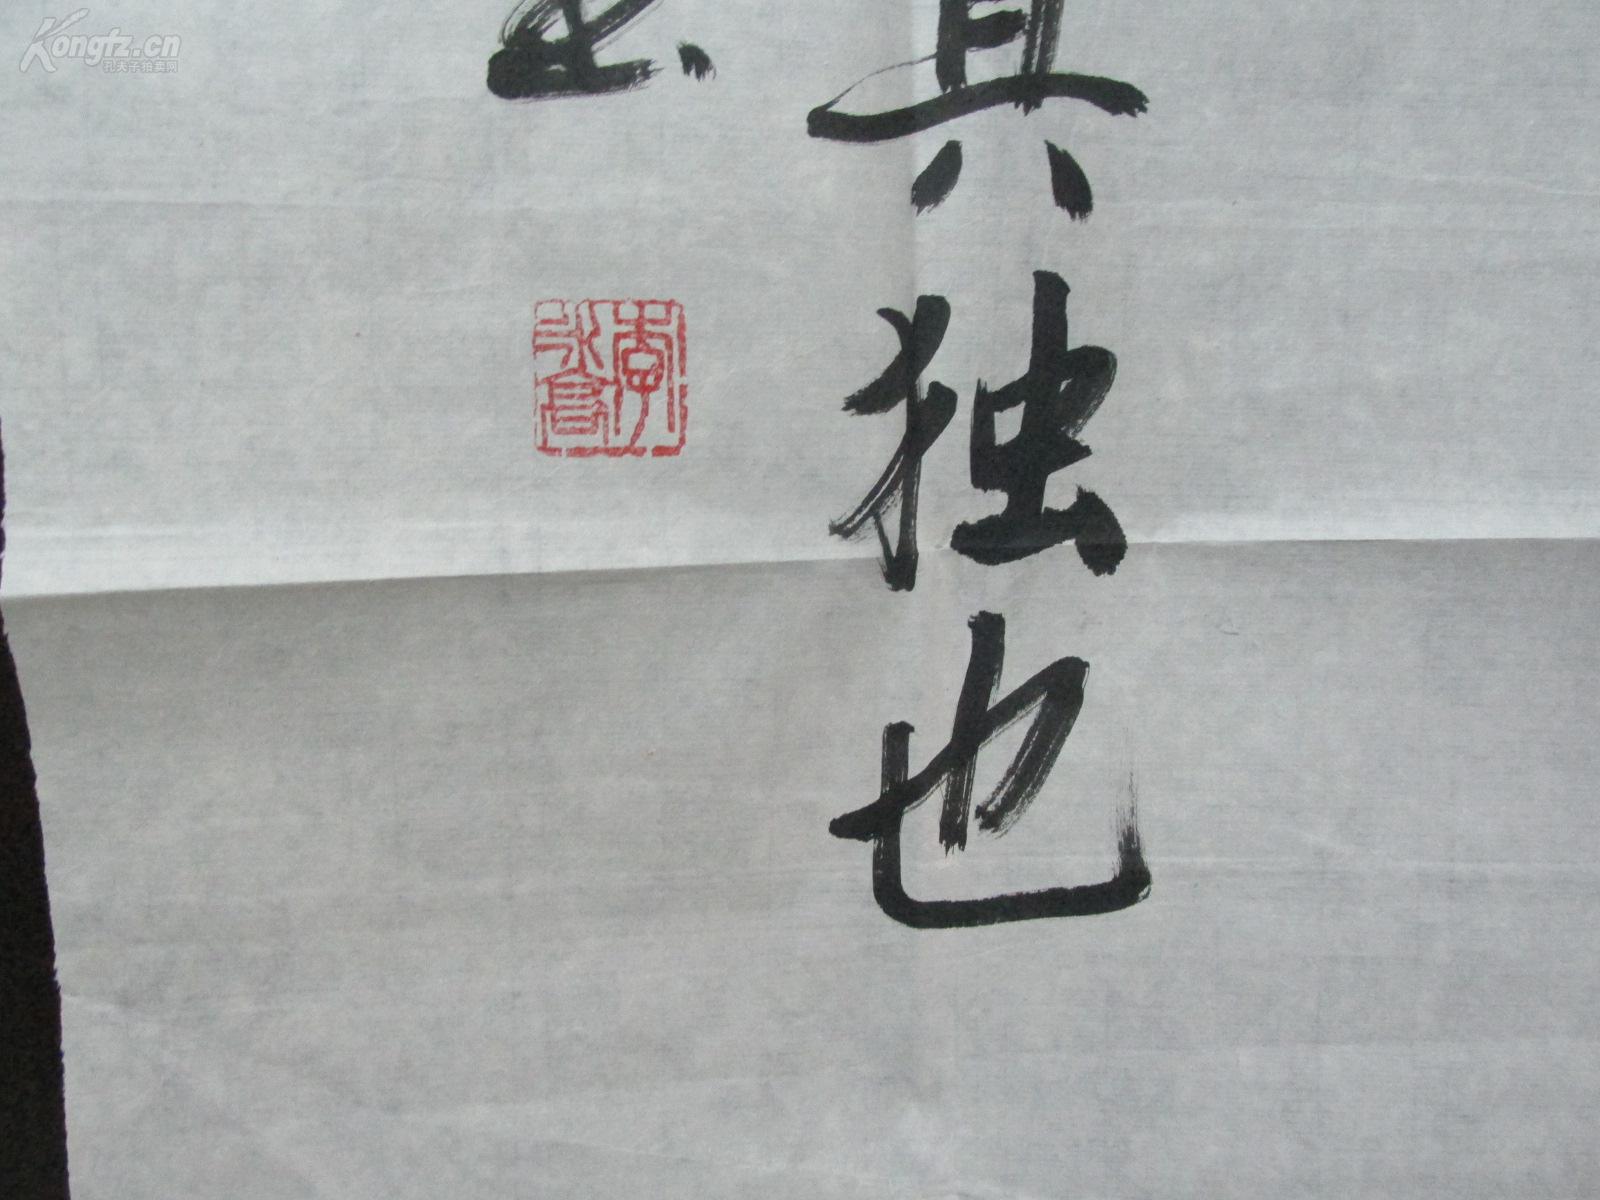 Kongfz.cn
孔夫子拍卖网
其独也